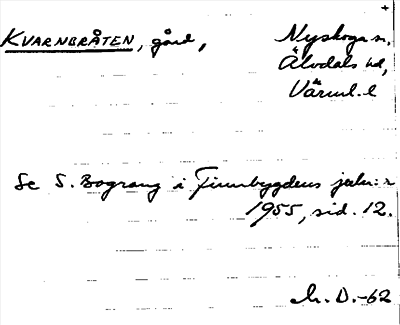 KVARNBRÅTEN, gård,
Nyskoga sn,
Älvdals hd,
Värml. l
Se S. Bograng i Finnbygdens julnr
1955, sid. 12.
D.-62